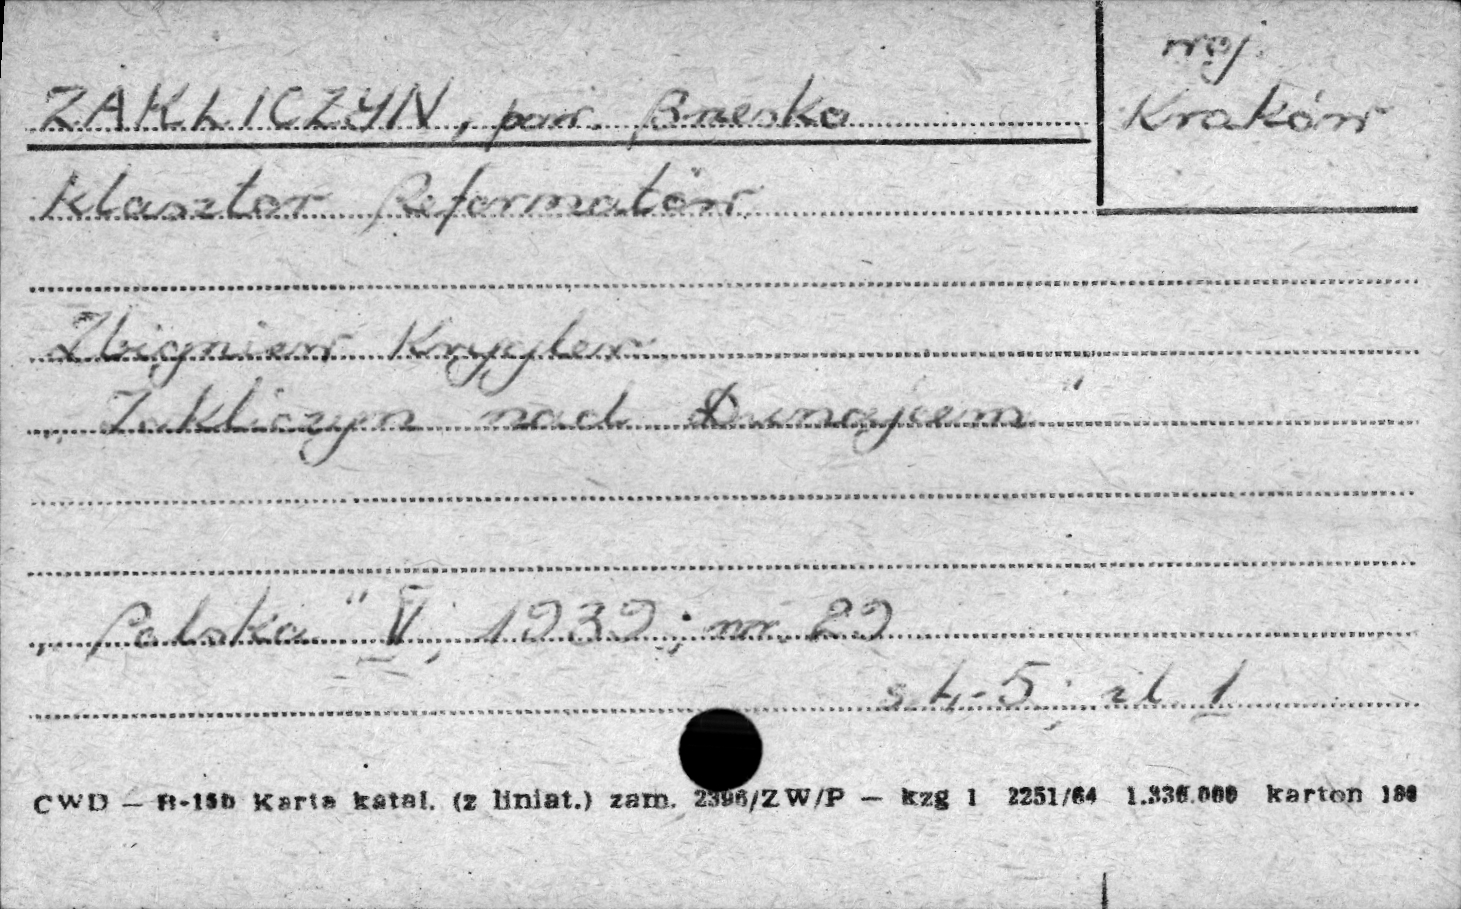 woj.
ZAKLICZYN, pow. Brzesko
Kraków
Klasztor Reformatów
Zbigniew Krygler
„Zakliczyn nad Dunajcem"
„Polska" V, 1939; nr. 29
s. 4-5; il. 1
CWD — R-15b Karta katal. (z liniat.) zam. 2396/ZW/P — kzg 1 2251/64 1.336.000 karton 180